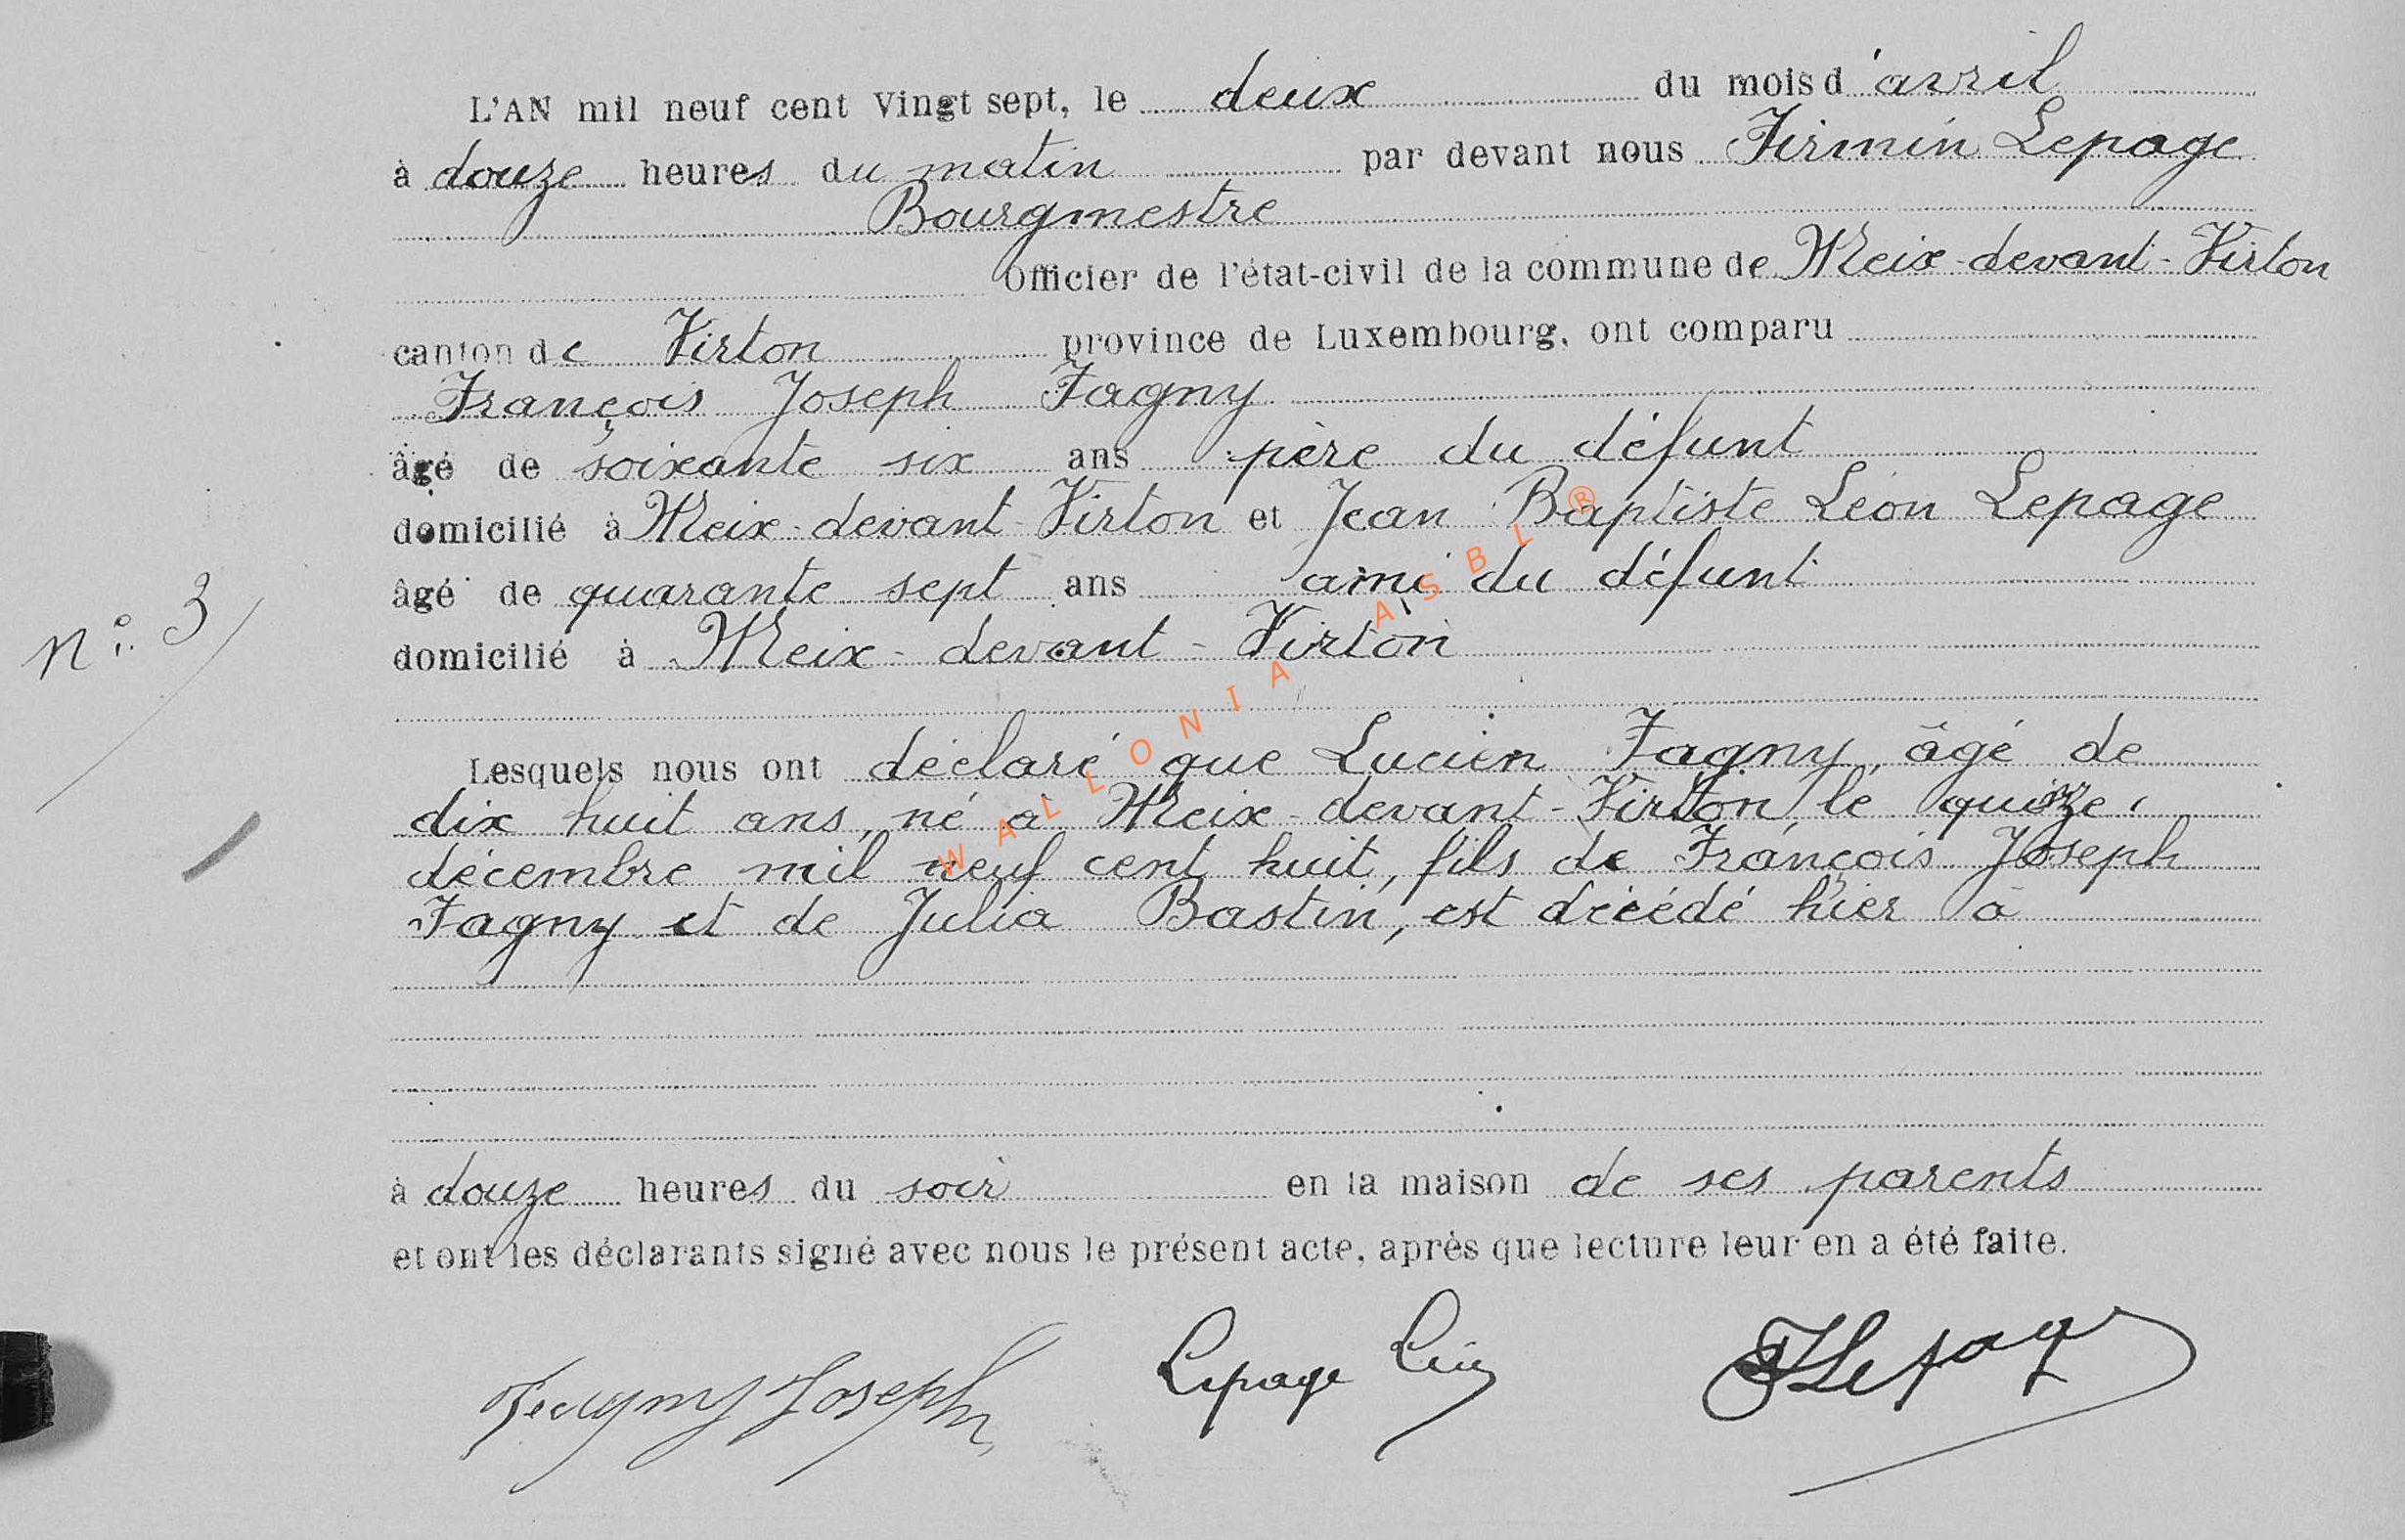 L'AN mil neuf cent Vingt sept, le deux du mois d'avril
à douze heures du matin par devant nous Firmin Lepage
Bourgmestre
Officier de l'état-civil de la commune de Meix-devant-Virton
canton de Virton province de Luxembourg, ont comparu
François Joseph Fagny
âgé de soixante six ans père du défunt
domicilié à Meix-devant-Virton et Jean Baptiste Léon Lepage
âgé de quarante sept ans ami du défunt
n° 3
domicilié à Meix-devant-Virton
Lesquels nous ont déclaré que Lucien Fagny, âgé de
dix huit ans, né à Meix-devant-Virton, le quinze
décembre mil neuf cent huit, fils de François Joseph
Fagny et de Julia Bastin, est décédé hier à
à douze heures du soir en la maison de ses parents
et ont les déclarants signé avec nous le présent acte, après que lecture leur en a été faite.
Fagny Joseph Lepage Léon FLepage
WALLONIA ASBL ®